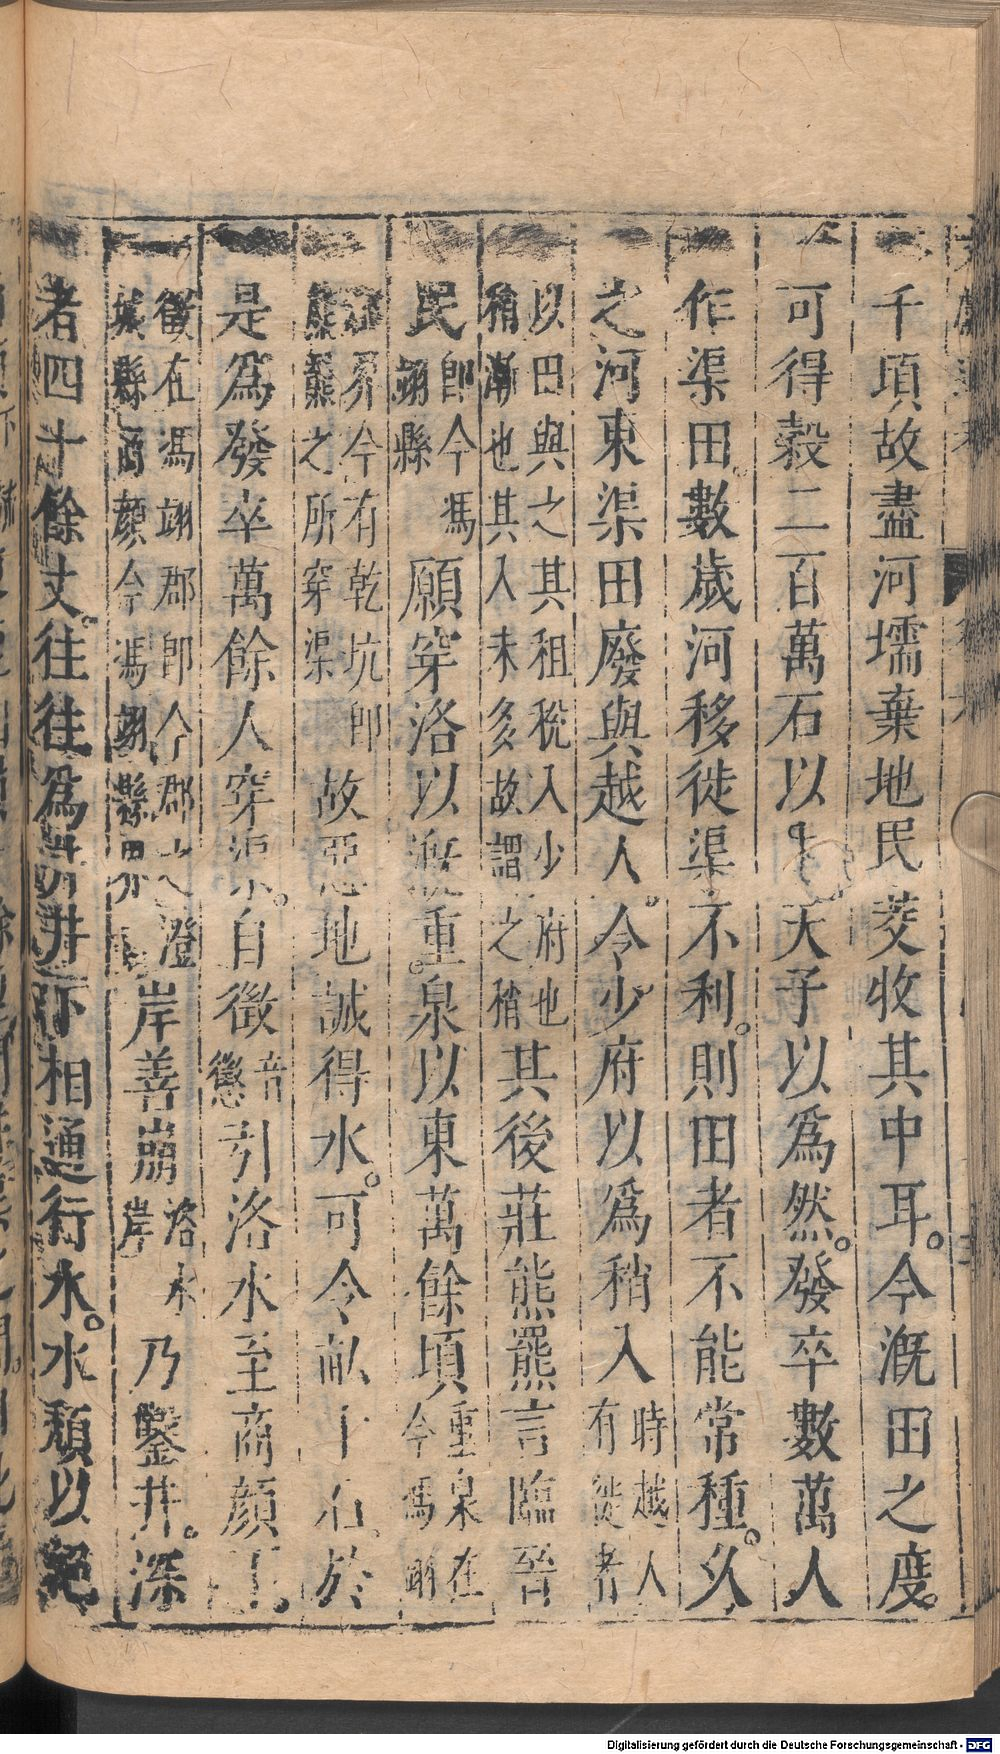 千頃故盡河壖棄地民茭收其中耳。今漑田之度。
可得穀二百萬石以上。天子以爲然。發卒數萬人
作渠田。數歲河移徙渠不利。則田者不能常種。久
之河東渠田廢與越人。令少府以爲稍入時越人有徙者
以田與之其租稅入少府也稍漸也其入未多故謂之稍其後莊熊羆言臨晉
民即今馮翊縣願穿洛以漑重泉以東萬餘頃重泉在今馮翊
郡界今有乾坑即熊羆之所穿渠故惡地誠得水。可令畝十石。於
是爲發卒萬餘人穿渠。自徵音懲引洛水至商顔下。
徵在馮翊郡即今郡之澄城縣商顔今馮翊縣界岸善崩洛水岸乃鑿井。深
者四十餘丈。往往爲井。井下相通行水。水頹以絕
Digitalisierung gefördert durch die Deutsche Forschungsgemeinschaft - DFG